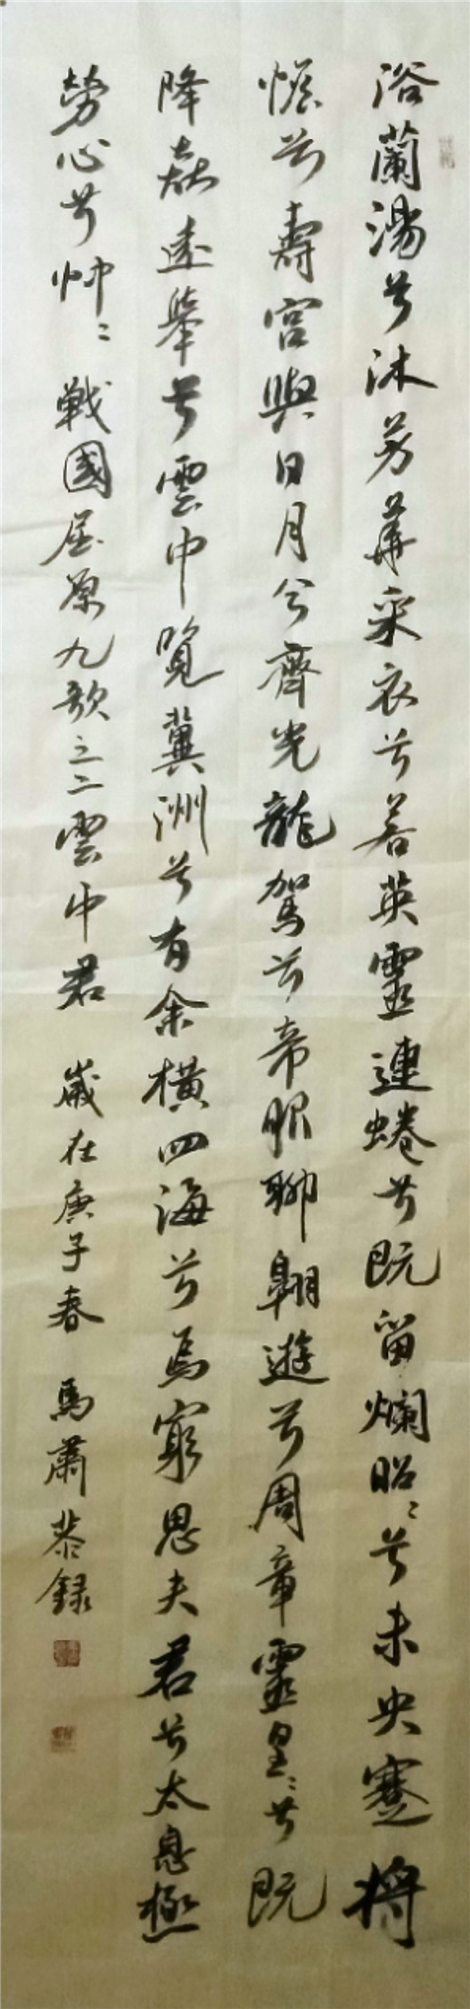 浴蘭湯兮沐芳華采衣兮若英靈連蜷兮既留爛昭〻兮未央蹇將
憺兮壽宮與日月兮齊光龍駕兮帝服聊翱遊兮周章靈皇〻兮既
降猋遠舉兮雲中覽冀洲兮有余橫四海兮焉窮思夫君兮太息極
勞心兮忡〻 戰國屈原九歌之二雲中君 歲在庚子春 馬蕭恭錄